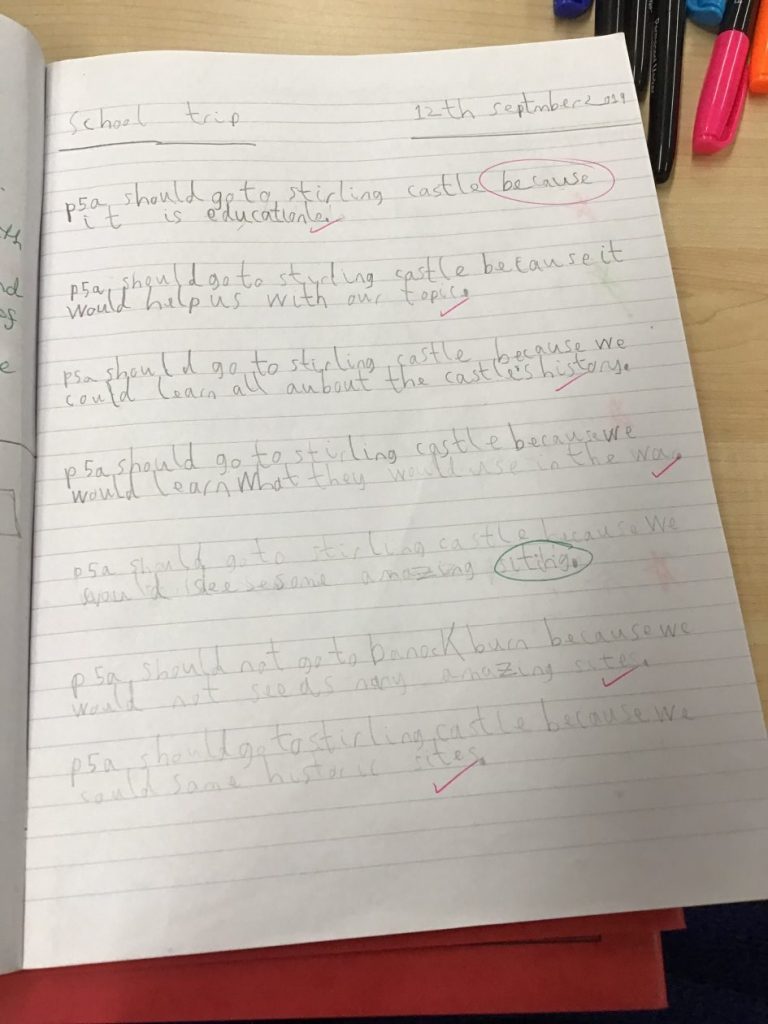 School trip
12th septmber 2019
p5a should go to stirling castle because
it is educationle.
p5a should go to styrling castle because it
would help us with our topic.
p5a should go to stirling castle because we
could learn all aubout the castle's history.
p5a should go to stirling castle because we
would learn what they would use in the war.
p5a should go to stirling castle because we
would see some amazing siting.
p5a should not go to banockburn because we
would not see as many amazing sites.
p5a should go to stirling castle because we
could same historic sites.
th
nd
of
e